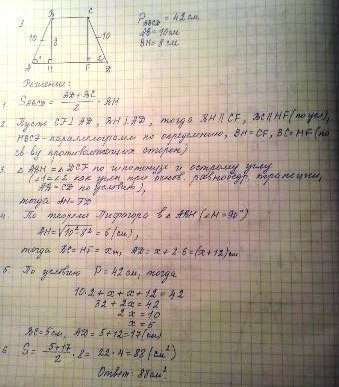 3.
B C
10 8 10
A H F D
P ABCD = 42 см
AB = 10 см
BH = 8 см
Решение:
1. S ABCD = (AD + BC)/2 · BH
2. Пусть CF⊥AD, BH⊥AD, тогда BH ∥ CF, BC∥HF (по усл),
HBCF - параллелограмм по определению, BH = CF, BC = HF (по
св-ву противолежащих сторон)
3. △ABH = △DCF по гипотенузе и острому углу
(∠1 = ∠2 как углы при основ. равнобедр. трапеции,
AB = CD по условию),
тогда AH = FD
4. По теореме Пифагора в △ABH (∠H = 90°)
AH = √10²-8² = 6 (см),
тогда BC = HF = x, AD = x + 2·6 = (x+12) см
5. По условию P = 42 см, тогда
10·2 + x + x + 12 = 42
32 + 2x = 42
2x = 10
x = 5
BC = 5 см, AD = 5 + 12 = 17 (см)
6. S = (5+17)/2 · 8 = 22·4 = 88 (см²)
Ответ: 88 см²